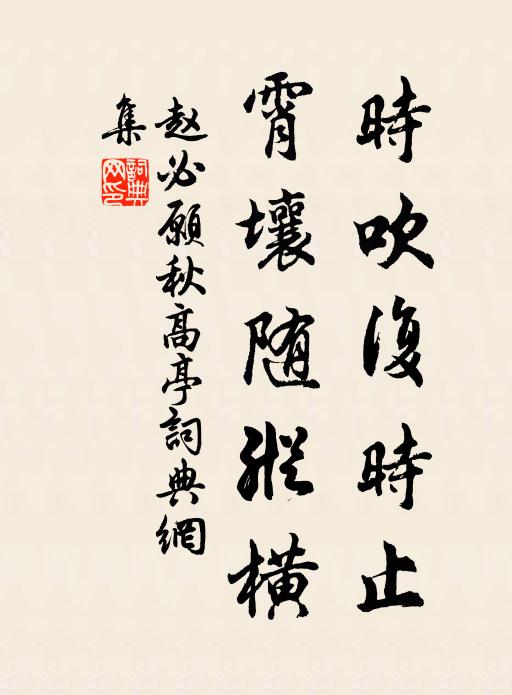 時吹復時止
霄壤随縱橫
赵必願秋高亭詞典網
集
詞典
网印